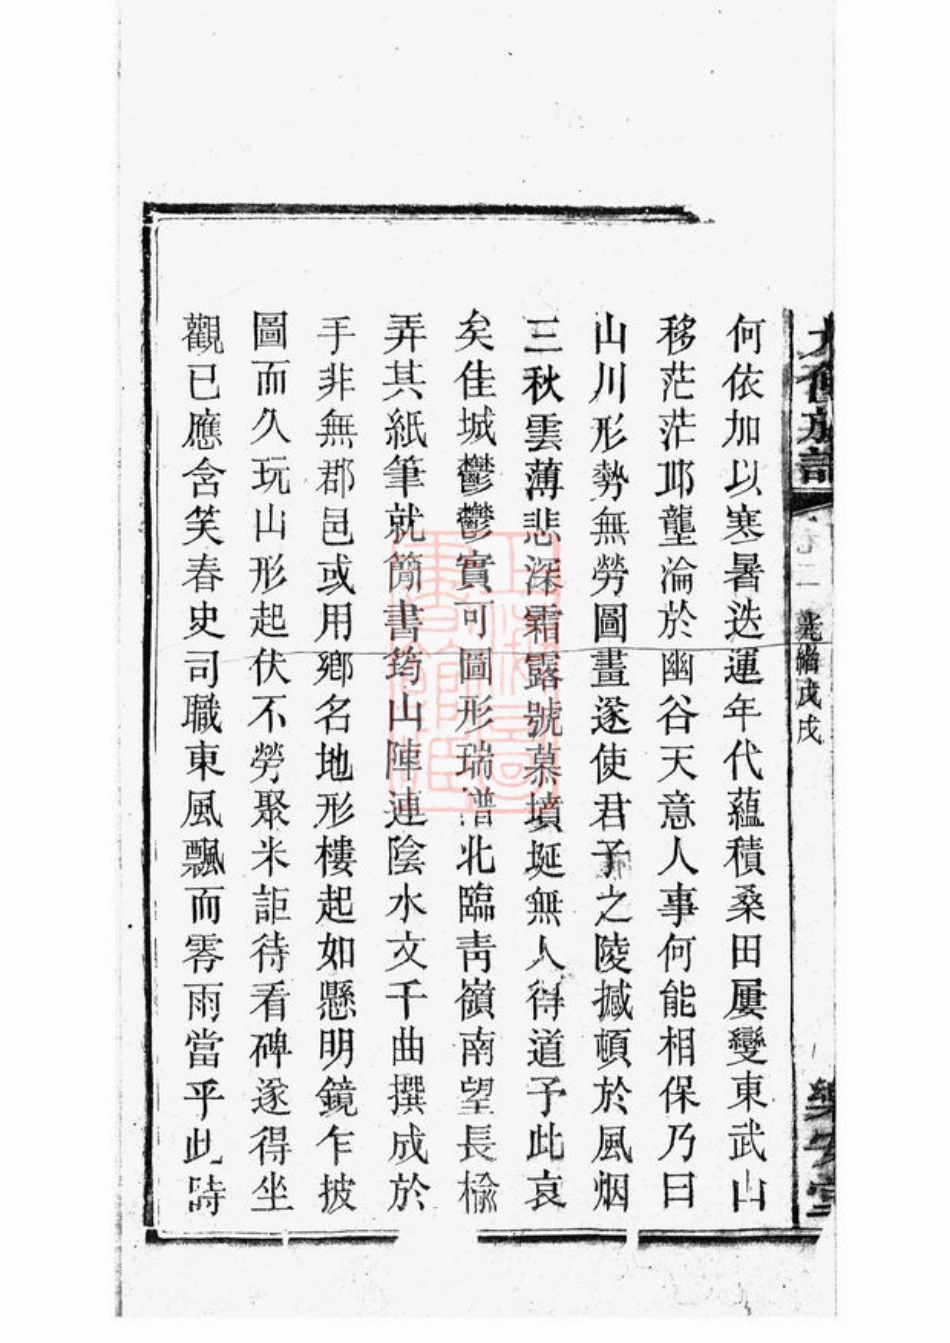 光緒戊戌
何依加以寒暑迭運年代蘊積桑田屢變東武山
移茫茫邱壟淪於幽谷天意人事何能相保乃曰
山川形勢無勞圖畫遂使君子之陵撼頓於風烟
三秋雲薄悲深霜露號慕墳埏無人得道予此哀
矣佳城鬱鬱實可圖形瑞潽北臨青嶺南望長榆
弄其紙筆就簡書筠山陣連陰水文千曲撰成於
手非無郡邑或用鄉名地形樓起如懸明鏡乍披
圖而久玩山形起伏不勞聚米詎待看碑遂得坐
觀已應含笑春史司職東風飄而零雨當乎此時
上海圖書館藏